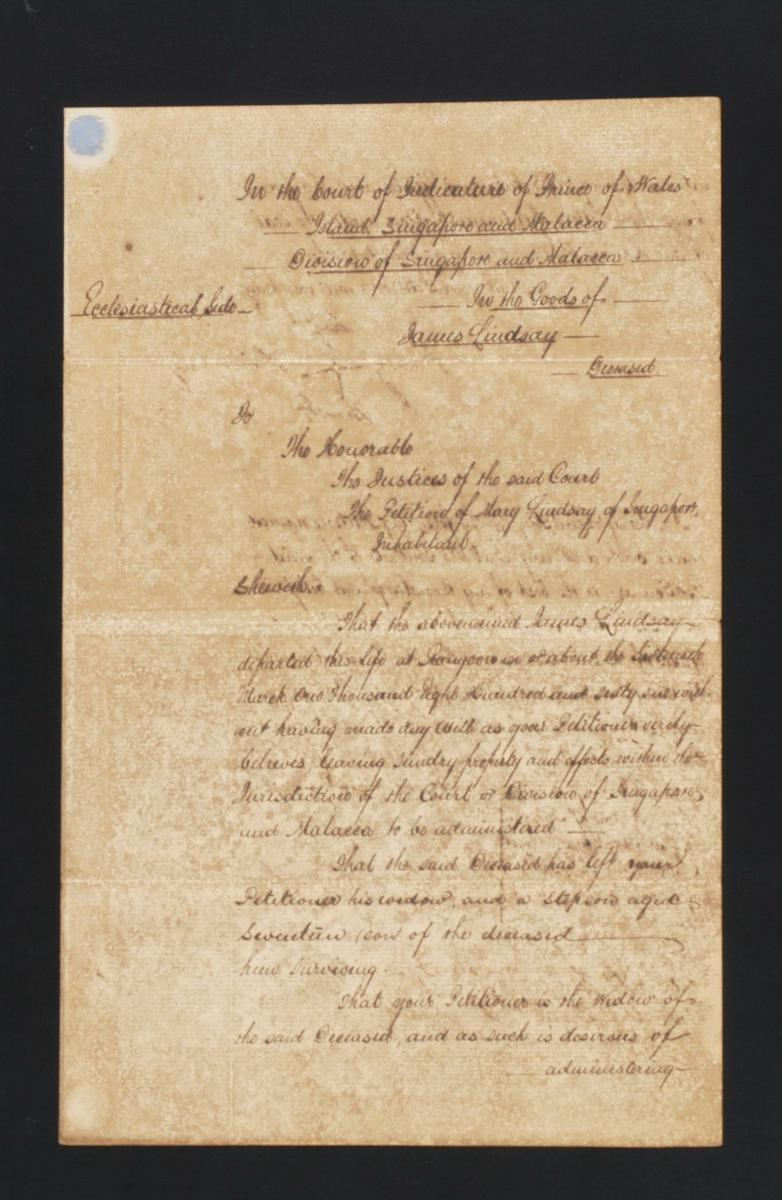 In the Court of Judicature of Prince of Wales
Island, Singapore and Malacca
Division of Singapore and Malacca
Ecclesiastical Side
In the Goods of
James Lindsay
Deceased.
To
The Honorable
The Justices of the said Court
The Petition of Mary Lindsay of Singapore,
Inhabitant
Sheweth
That the abovenamed James Lindsay
departed this life at Rangoon in or about the
March One Thousand Eight Hundred and Sixty with
out having made any Will as your Petitioner verily
believes, leaving sundry property and effects within the
Jurisdiction of the Court or Division of Singapore
and Malacca to be administered
That the said Deceased has left your
Petitioner his widow, and a stepson aged
Seventeen (son of the deceased
him Surviving.
That your Petitioner is the Widow of
the said Deceased, and as such is desirous of
administering